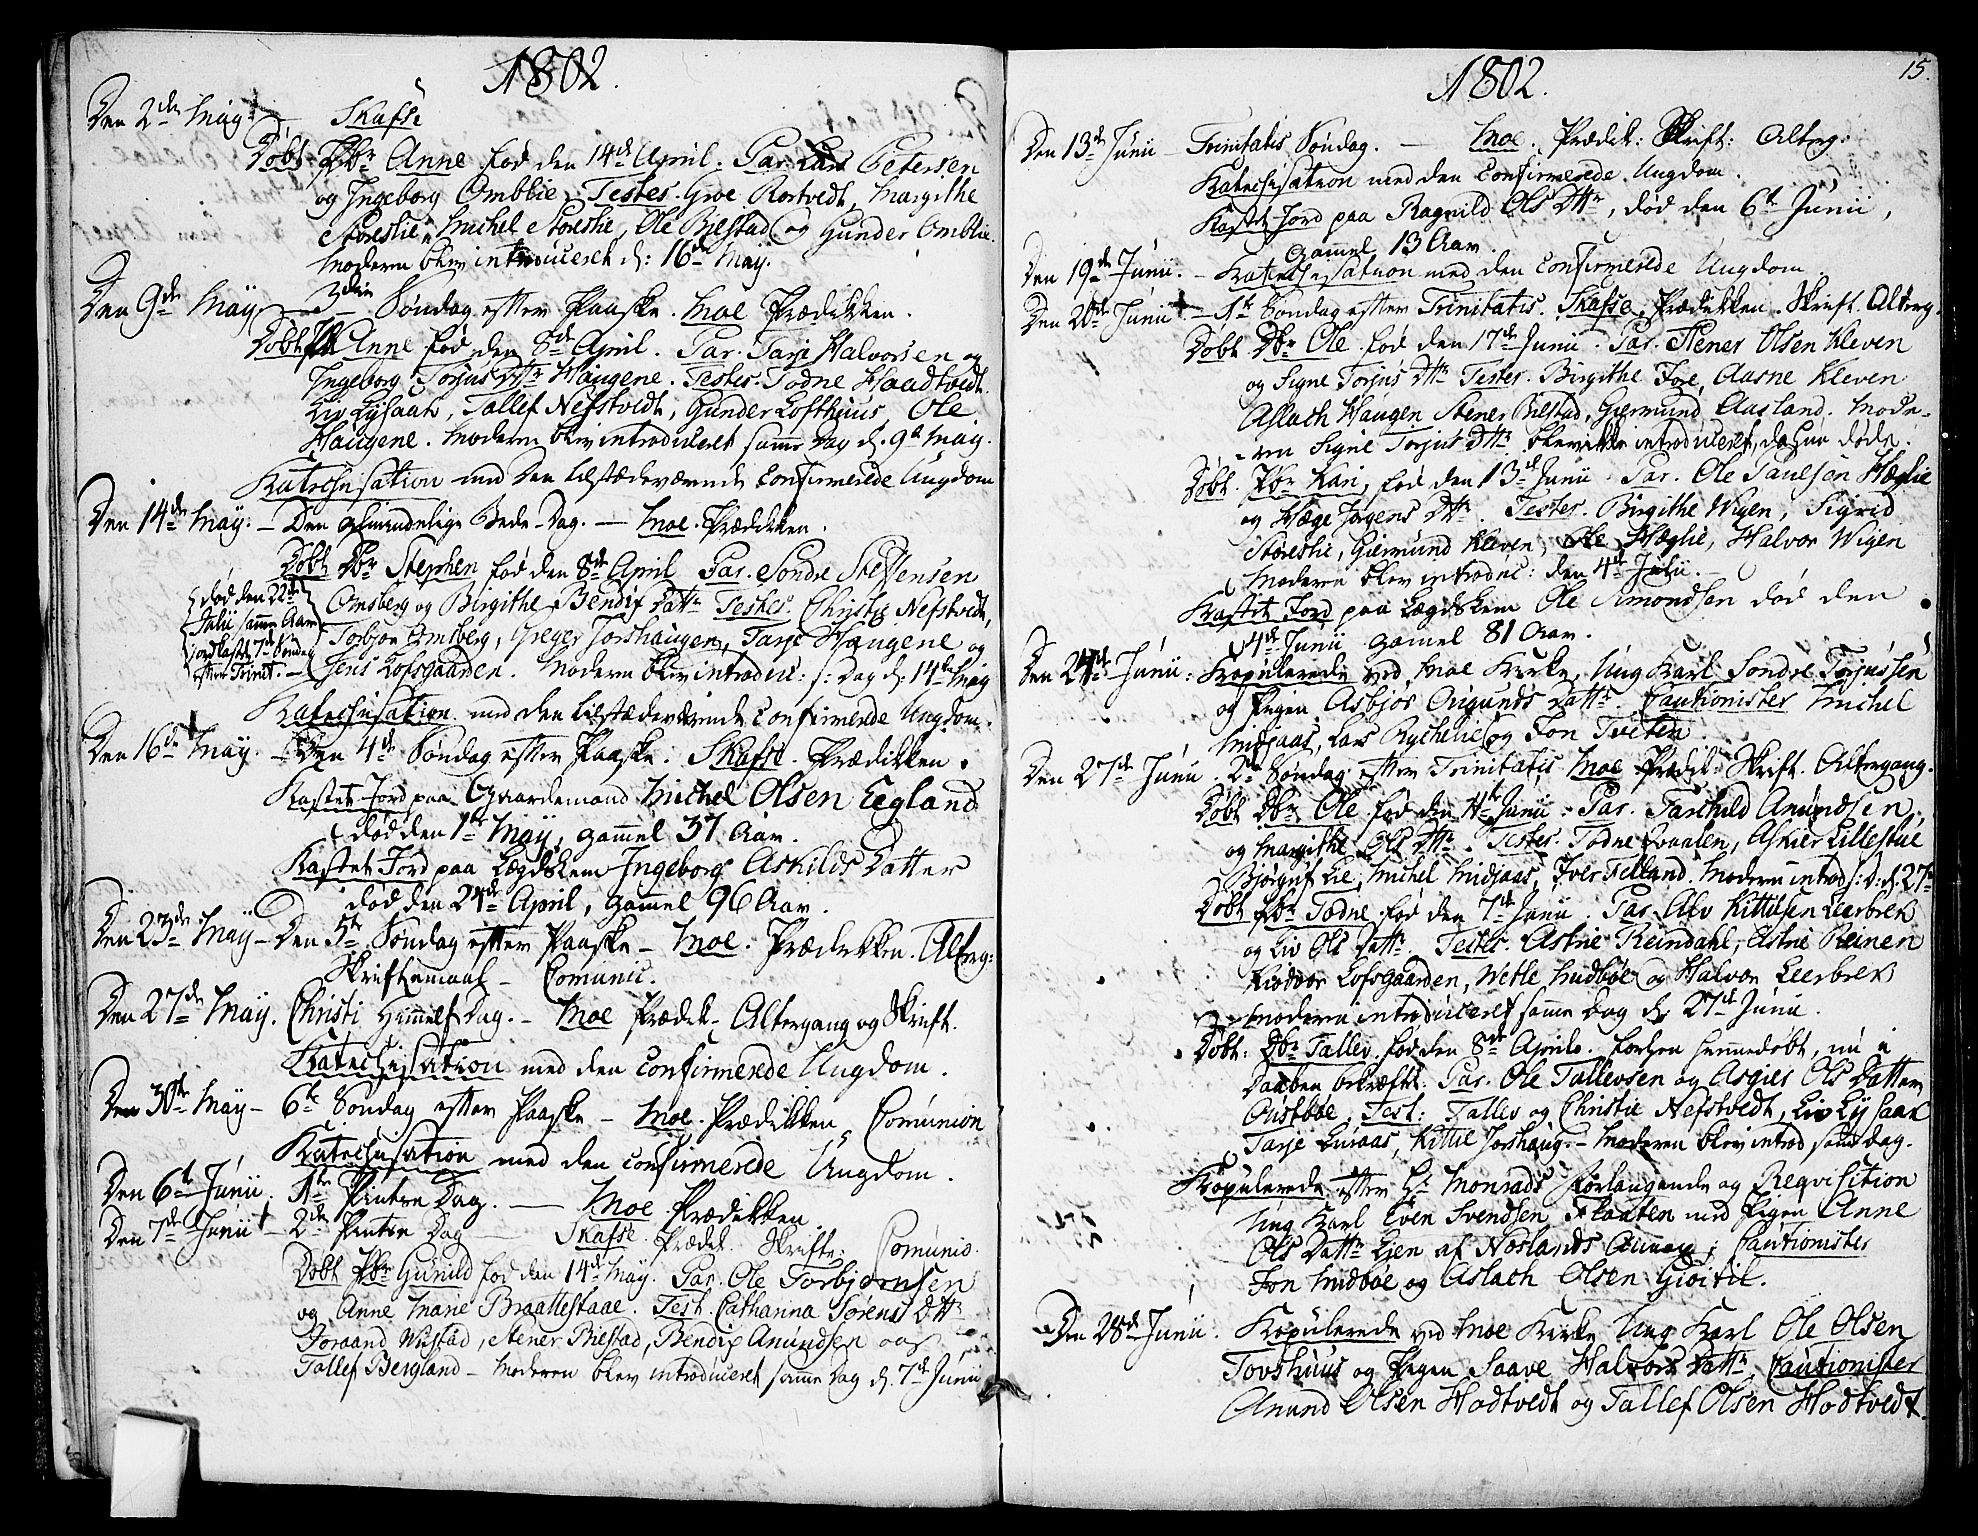 1802.
Den 2den May. Skafse
Døbt Pbr Anne fød den 14de April. Par. Lars Petersen
og Ingeborg Omblie. Testes. Groe Rortvedt, Margithe
Støreslie, Michel Støreslie, Ole Bielstad og Gunder Omblie.
Moderen blev introduceret d: 16de May.
Den 9de May 3die Søndag efter Paaske. Moe Prædikken.
Døbt Anne fød den 8de April. Par. Tarje Halvorsen og
Ingeborg Torjus Dttr Haugene. Testes. Todne Haadtvedt
Liv Lysaak, Tallef Nefstvedt, Gunder Lofthuus, Ole
Haugene. Moderen blev introduceret samme Dag d. 9de May.
Katechisation med den tilstædeværende Confirmerede Ungdom
Den 14de May. – Den almindelige Bede-Dag. – Moe. Prædikken.
Døbt Dbr Stephen fød den 8de April Par. Sondre Steffensen
Omsberg og Birgithe Bendix Dattr Testes. Christie Nefstvedt,
Torbjør Omsberg, Greger Jorshaugen, Tarje Haugene og
Jens Lofsgaarden. Moderen blev introduc: s: Dag d. 14de May
død den 22de
Julii samme Aar
Jordkastet 7de Søndag
efter Trinit. –
Katechisation med den tilstædeværende Confirmerede Ungdom.
Den 16de May. – Den 4de Søndag efter Paaske. Skafse. Prædikken.
Kastet Jord paa Gaardemand Michel Olsen Eegland
død den 1te May, gammel 37 Aar.
Kastet Jord paa Lægdslem Ingeborg Askilds Datter
død den 24de April, gamel 96 Aar.
Den 23de May – Den 5te Søndag efter Paaske – Moe. Prædikken. Alterg:
Skriftemaal – Comunic.
Den 27de May. Christi Himmelf. Dag. – Moe Prædik– Altergang og Skrift.
Katechisation med den Confirmerede Ungdom.
Den 30te May – 6te Søndag efter Paaske – Moe. Prædikken Comunion
Katechisation med den confirmerede Ungdom.
Den 6te Junii. 1te Pintse Dag. – Moe Prædikken.
Den 7de Junii – 2de Pintse Dag – Skafse. Prædik. Skrifte: Comunio.
Døbt Pbr Gunild fød den 14de May. Par. Ole Torbjørnsen
og Anne Marie Braattestaae. Test. Cathanna Sørens Dttr
Joraand Wiistad, Stener Bielstad, Bendix Amundsen og
Tallef Bergland – Moderen blev introduceret samme Dag d. 7de Junii
15.
1802.
Den 13de Junii – Trinitatis Søndag. – Moe. Prædik: Skrift: Alterg:
Katechisation med den Confirmerede Ungdom.
Kastet Jord paa Ragnild Ols Dttr, død den 6te Junii,
Gammel 13 Aar.
Den 19de Junii. – Katechisation med den Confirmerede Ungdom
Den 20de Junii – 1te Søndag efter Trinitatis. Skafse. Prædikken. Skrift. Alterg.
Døbt Dbr Ole fød den 17de Junii. Par. Stener Olsen Kleven
og Signe Torjus Dttr Testes. Birgithe Fore, Aasne Kleven
Aslach Haugen Stener Bielstad, Giermund Aasland. Mode-
ren Signe Torjus Dttr blev ikke introduceret, da hun døde.
Døbt. Pbr Kari, fød den 13de Junii. Par. Ole Paulsen Hæglie
og Hæge Jorgens Dttr. Testes. Birgithe Wigen, Sigrid
Støreslie, Giermund Kleven, Ole Hæglie, Halvor Wigen
Moderen blev introduc: den 4de Julii.
Kastet Jord paa Lægdslem Ole Simondsen død den
4de Junii gamel 81 Aar.
Den 24de Junii: Kopulerede ved Moe Kirke, Ung Karl Sondre Torjussen
og Pigen Asbjør Ougunds Dattr. Cautionister Michel
Midjaas, Lars Rychelie og Jon Tveten.
Den 27de Junii. 2de Søndag efter Trinitatis Moe Prædik: Skrift. Altergang.
Døbt Dbr Ole fød den 4de Junii. Par. Tarchild Amundsen,
og Margithe Ols Dttr. Testes. Todne Lillestue
Bjørguf Lie, Michel Midjaas, Iver Felland. Moderen introd: s: D: d. 27de
Døbt Pbr Todne fød den 7de Junii. Par. Alv Kittilsen Leerbrek
og Liv Ols Dattr. Testes. Astrie Reindahl, Astrie Reinen
Lofsgaarden, Wetle Midbøe og Halvor Leerbrek
Moderen introduceret samme Dag d. 27de Junii.
Døbt: Dbr Tallev fød den 8de April. forhen hiemmedøbt, nu i
Daaben bekræftet. Par. Ole Tallevsen og Asgier Ols Datter
Oustbøe. Test: Tallev og Christie Nefstvedt, Liv Lysaak
Tarje Luraas, Kittil Jorshaug. – Moderen blev introd samme Dag.
Kopulerede efter Hr Monrads Forlangende og Reqvisition
Ung Karl Even Svendsen Flaaten med Pigen Anne
Ols Dattr Lien af Noslands Annex; Cautionister
Jon Midbøe og Aslach Olsen Gioitil.
Den 28de Junii. Kopulerede ved Moe Kirke Ung Karl Ole Olsen
Tovshuus og Pigen Saave Halvors Dattr. Cautionister
Anund Olsen Hadtvedt og Tallef Olsen Hadtvedt.